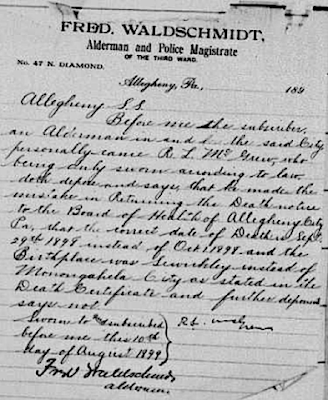 FRED. WALDSCHMIDT,
Alderman and Police Magistrate
OF THE THIRD WARD.
No. 47 N. DIAMOND.
Allegheny, Pa., 189
Allegheny S.S.
Before me the subscriber,
an Alderman in and f the said City
personally came R. L. McGrew, who
being duly sworn according to law
doth depose and says, that he made the
mistake in Returning the Death notice
to the Board of Health of Allegheny City
Pa, that the correct date of Death is Sept.
29th 1898 instead of Oct 1898 and the
Birthplace was Sewickley instead of
Monongahela City as stated in the
Death Certificate and further deponent
says not
Sworn to and subscribed
before me this 10th
day of August 1899
R. L. McGrew
Fred Waldschmidt
alderman.